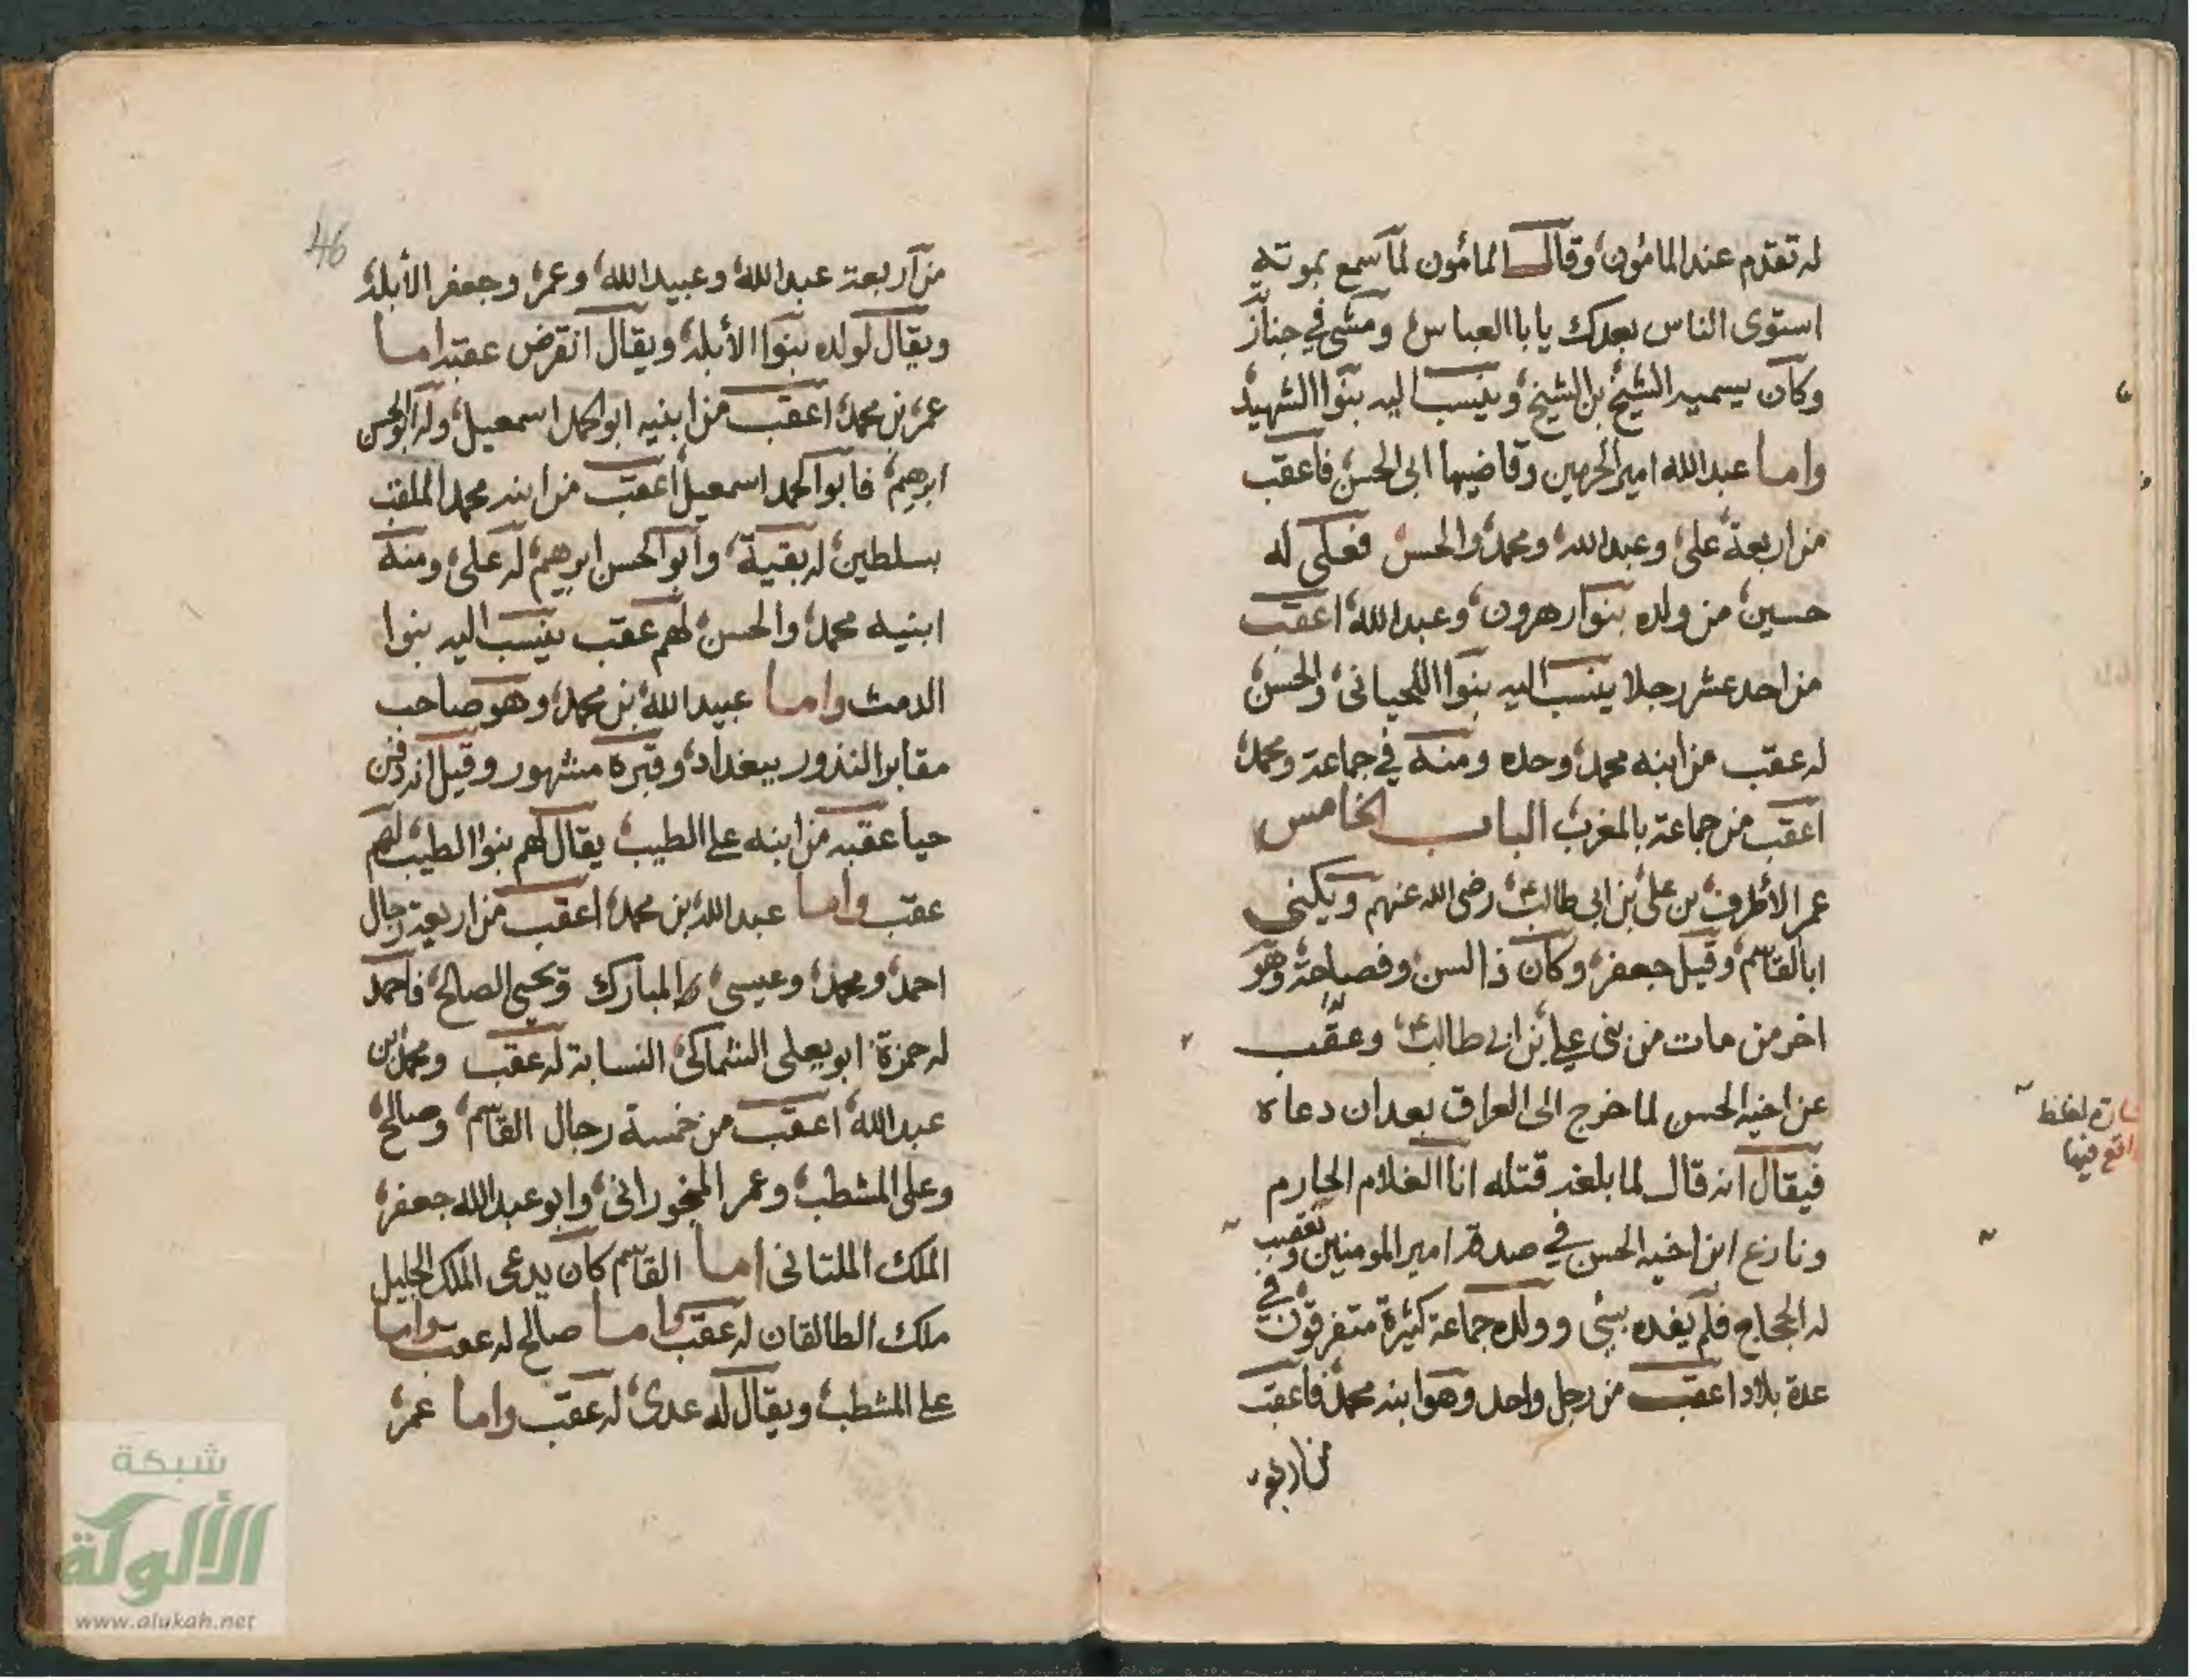 له تقدم عند المامون وقال المامون لما سمع بموته
استوى الناس بعدك يا با العباس ومشى في جناز
وكان يسميه الشيخ بن الشيخ وينسب اليه بنوا الشهيد
واما عبد الله امير الحرمين وقاضيها ابى الحسن فاعقب
من اربعة على وعبد الله ومحمد والحسن فعلى له
حسين من ولده بنوا هرون وعبد الله اعقب
من احد عشر رجلا ينسب اليه بنوا اللحيانى والحسن
له عقب من ابنه محمد وحده ومنه في جماعة ومحمد
اعقب من جماعة بالمغرب الباب الخامس
عمر الأطرف بن على بن ابى طالب رضى الله عنهم ويكنى
ابا القاسم وقيل جعفر وكان ذا لسن وفصاحة وهو
اخر من مات من بنى على بن ابى طالب وعقب
عن اخيه الحسن لما خرج الى العراق بعد ان دعاه
فيقال انه قال لما بلغه قتله انا الغلام الحازم
ونازع ابن اخيه الحسن في صدقة امير المومنين وتعصب
له الحجاج فلم يفده بشى وولده جماعة كثيرة متفرقون في
عدة بلاد اعقب من رجل واحد وهو ابنه محمد فاعقب
من اربعة
واقع فيها
46
من اربعة عبد الله وعبيد الله وعمر وجعفر الأبله
ويقال لولده بنوا الأبله ويقال انقرض عقبه اما
عمر بن محمد اعقب من ابنيه ابو الحمد اسمعيل وله ابو الحسن
ابرهيم فابوا الحمد اسمعيل اعقب من ابنه محمد الملقب
بسلطين له بقية وابوا الحسن ابرهيم له على ومنه
ابنيه محمد والحسن لهم عقب ينسب اليه بنوا
الدمث واما عبيد الله بن محمد وهو صاحب
مقابر النذور ببغداد وقبره مشهور وقيل انه دفن
حيا عقبه من ابنه على الطيب يقال لهم بنوا الطيب لهم
عقب واما عبد الله بن محمد اعقب من اربعة رجال
احمد ومحمد وعيسى المبارك ويحيى الصالح فاحمد
له حمزة ابو يعلى السماكى النسابة له عقب ومحمد بن
عبد الله اعقب من خمسة رجال القاسم وصالح
وعلى المشطب وعمر المنجورانى وابو عبد الله جعفر
الملك الملتانى اما القاسم كان يدعى الملك الجليل
ملك الطالقان له عقب واما صالح له عقب واما
على المشطب ويقال له عدى له عقب واما عمر
شبكة
الألوكة
www.alukah.net